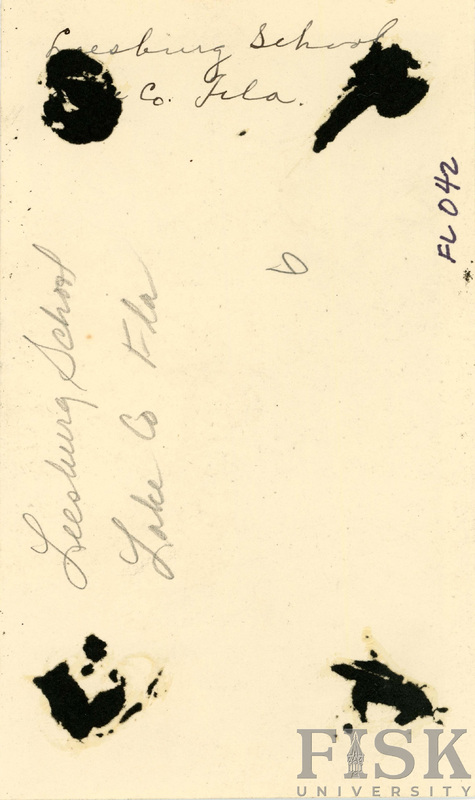 Leesburg School
Co. Fla.
FL 042
Leesburg School
Lake Co Fla
FISK
UNIVERSITY